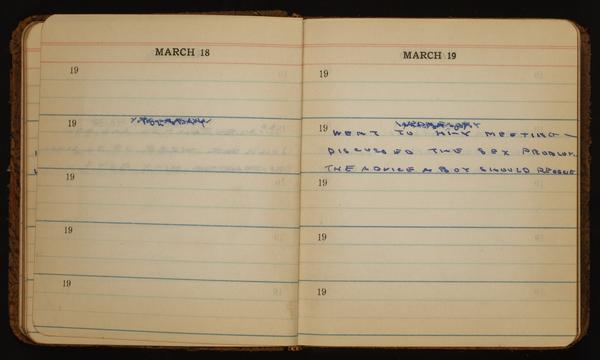 MARCH 18
19
19
19
19
19
MARCH 19
19
19
WENT TO HI-Y MEETING—
DISCUSSED THE SEX PROBLEM.
THE ADVICE A BOY SHOULD
19
19
19